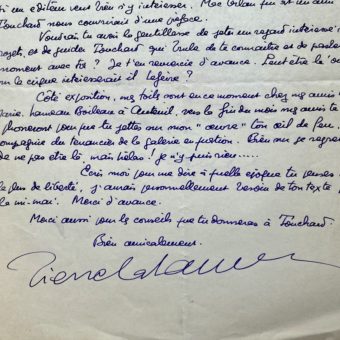 un éditeur veut bien s'y intéresser. Mac Orlan
Touchard nous écrivions d'une préface.
Voudrais tu avoir la gentillesse de jeter un regard intéressé
projets, et de guider Touchard qui brûle de te connaître et de parler
moment avec toi ? Je t'en remercie d'avance. Peut être le
sur le cirque intéresserait il
Côté exposition, mes toiles sont en ce moment chez mes amis
hameau Boileau à Auteuil, vers la fin du mois mes amis te
pour que tu jettes sur mon "œuvre" ton œil de feu,
compagnie du tenancier de la galerie en question. Bien sûr je
de ne pas être là, mais hélas ! je n'y puis rien.....
Écris moi pour me dire à quelle époque tu penses
un peu de liberté, j'aurais personnellement besoin de ton texte
la mi-mai. Merci d'avance.
Merci aussi pour les conseils que tu donneras à Touchard.
Bien amicalement.